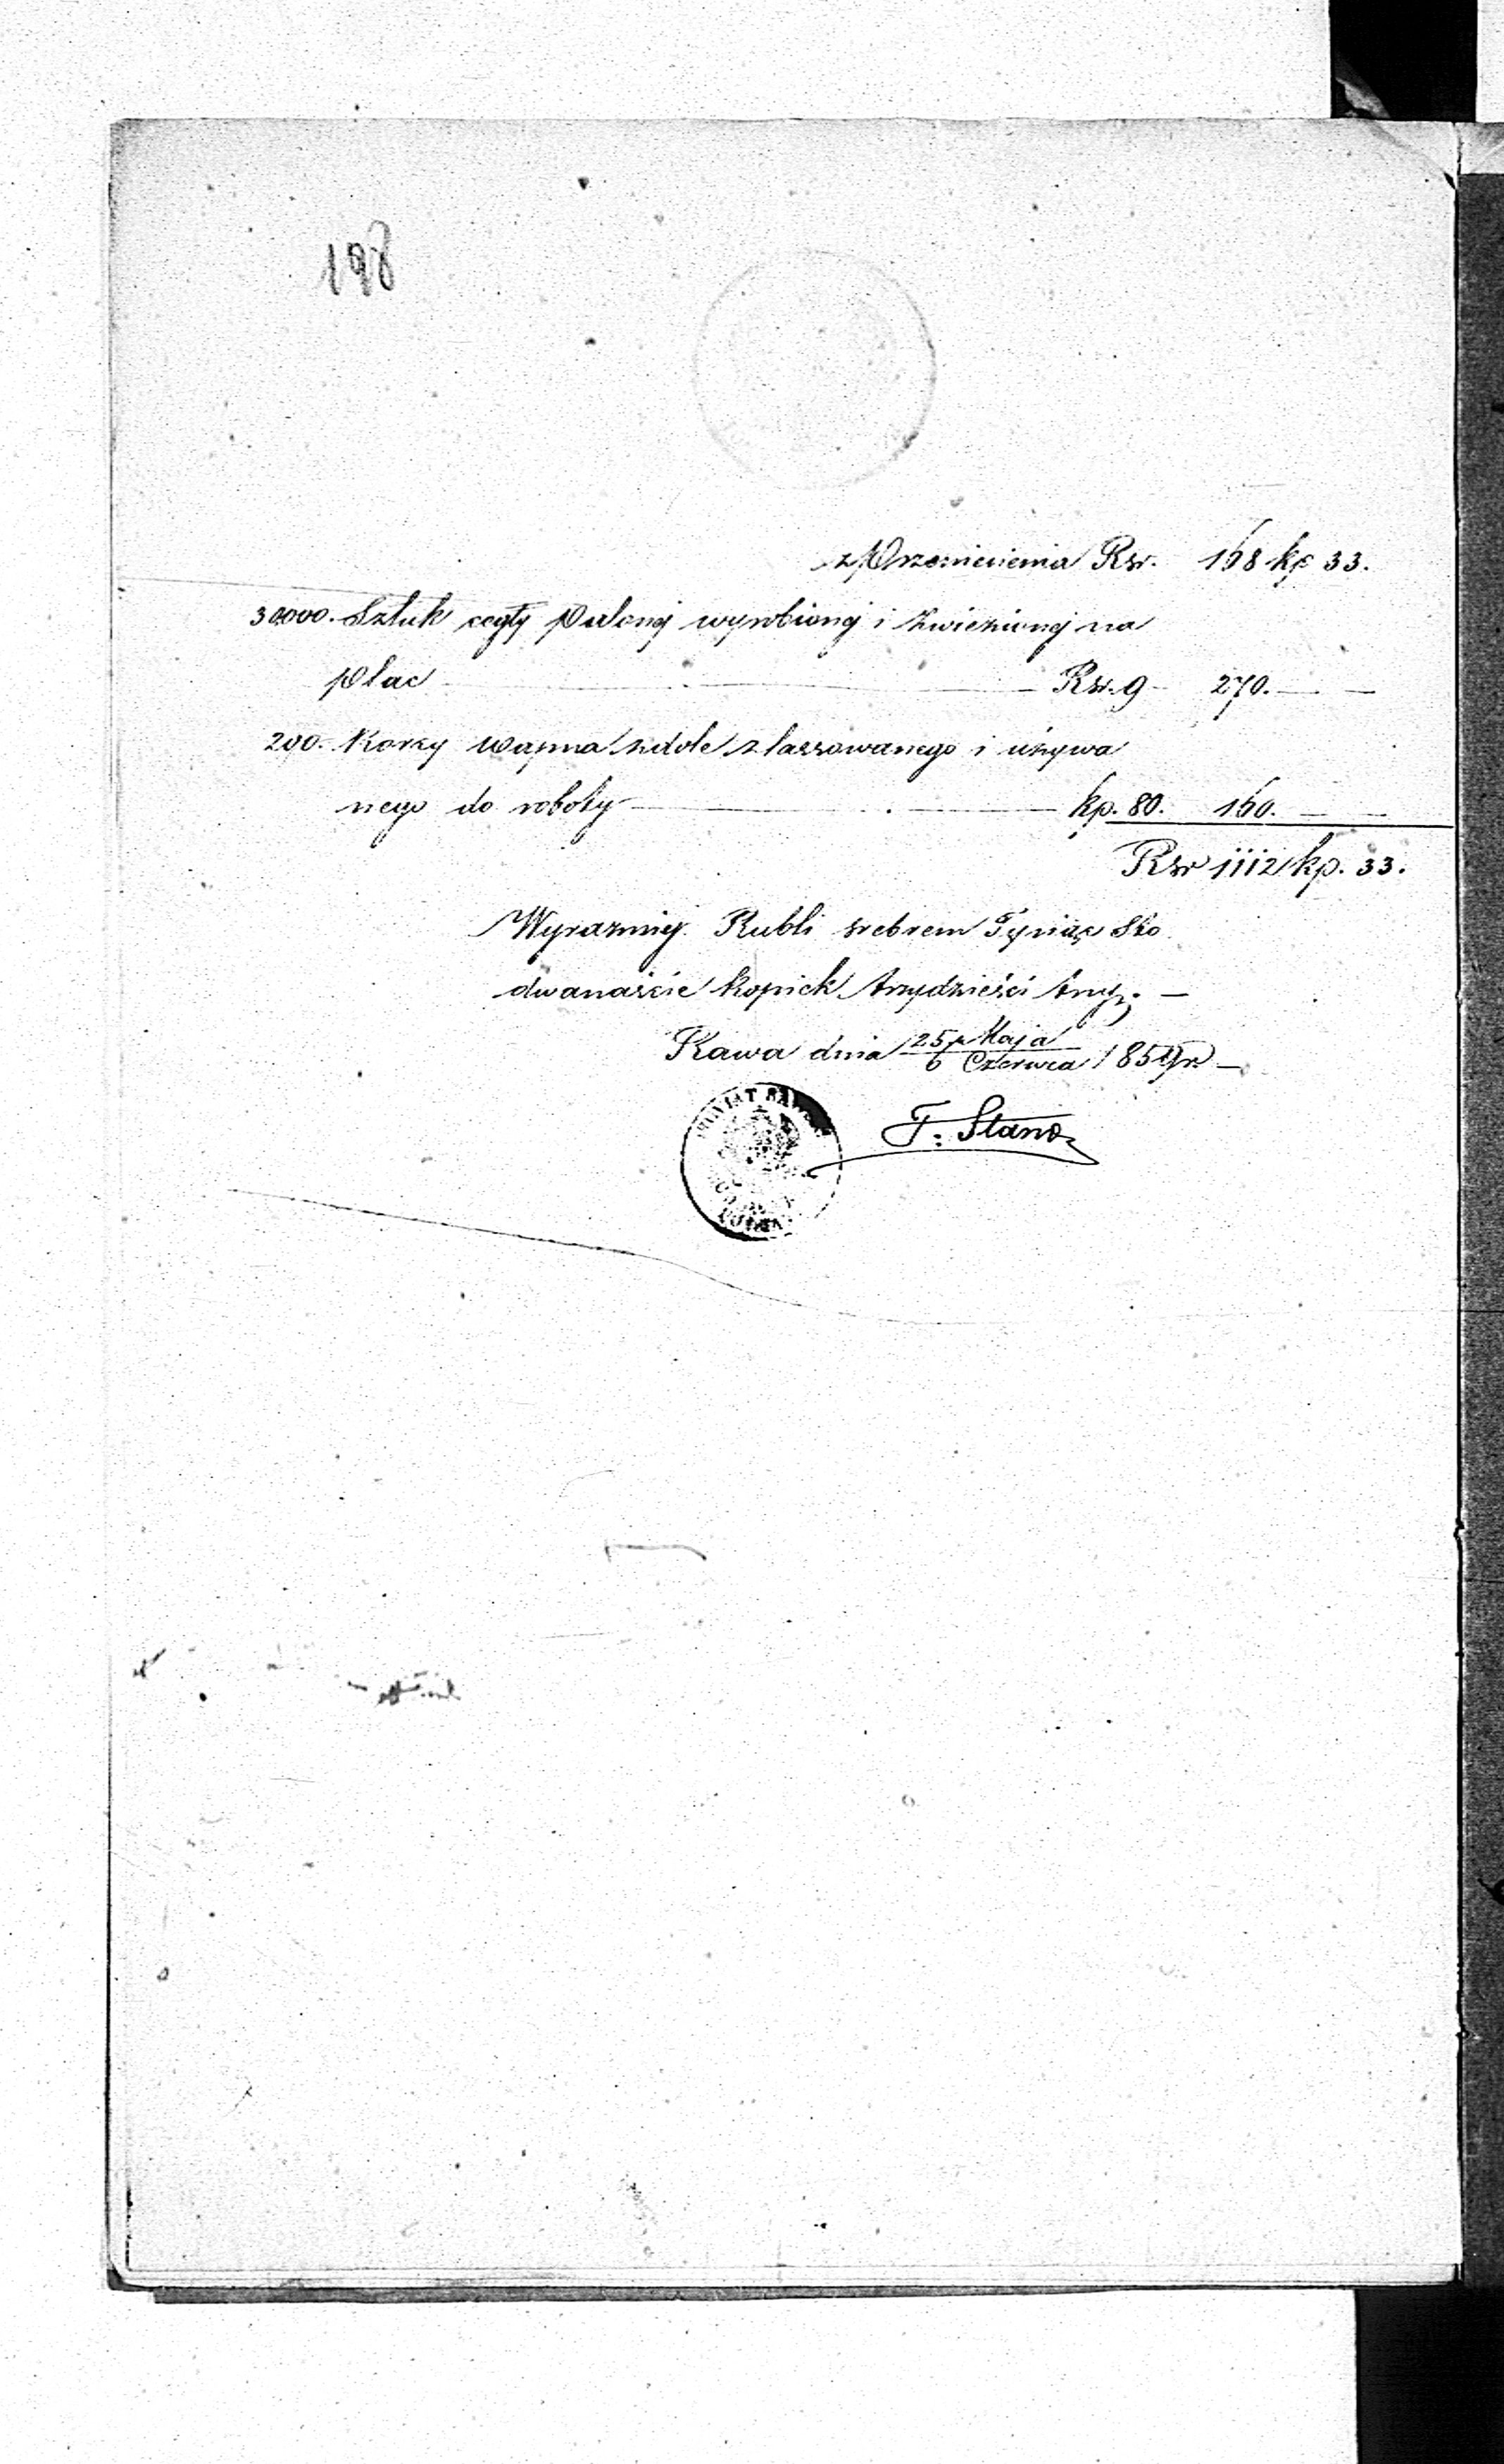 198
z Przeniesienia Rsr. 168 kp 33.
30000. Sztuk cegły palonej wyrobionej i zwiezionej na
plac Rsr. 9 270.
200. Korcy wapna w dole zlassowanego i używa
nego do roboty kp. 80. 160.
Rsr 1112 kp. 33.
Wyraźniej Rubli srebrem Tysiąc Sto
dwanaście kopiek trzydzieści trzy. —
Rawa dnia 25 Maja / 6 Czerwca 1859 r. —